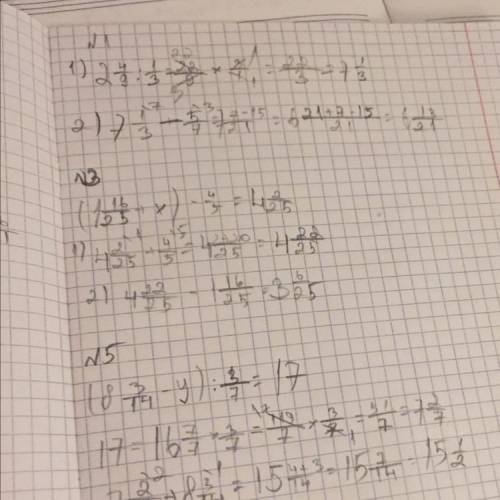 №1
1) 2 4/9 : 1/3 = 22/9 × 3/1 = 22/3 = 7 1/3
2) 7 1/3 - 5/7 = 7 7-15/21 = 6 21+7-15/21 = 6 13/21
№3
(1 16/25 + x) - 4/5 = 4 2/25
1) 4 2/25 + 4/5 = 4 2+20/25 = 4 22/25
2) 4 22/25 - 1 16/25 = 3 6/25
№5
(8 3/14 - y) : 3/7 = 17
17 = 16 7/7 × 3/7 = 119/7 × 3/7 = 51/7 = 7 2/7
= 15 4+3/14 = 15 7/14 = 15 1/2